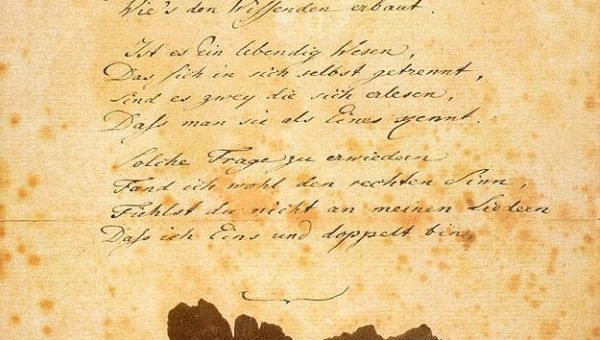 Wie's den Wissenden erbaut.
Ist es Ein lebendig Wesen,
Das sich in sich selbst getrennt,
Sind es zwey die sich erlesen,
Dass man sie als Eines kennt.
Solche Frage zu erwiedern
Fand ich wohl den rechten Sinn,
Fühlst du nicht an meinen Liedern
Dass ich Eins und doppelt bin.